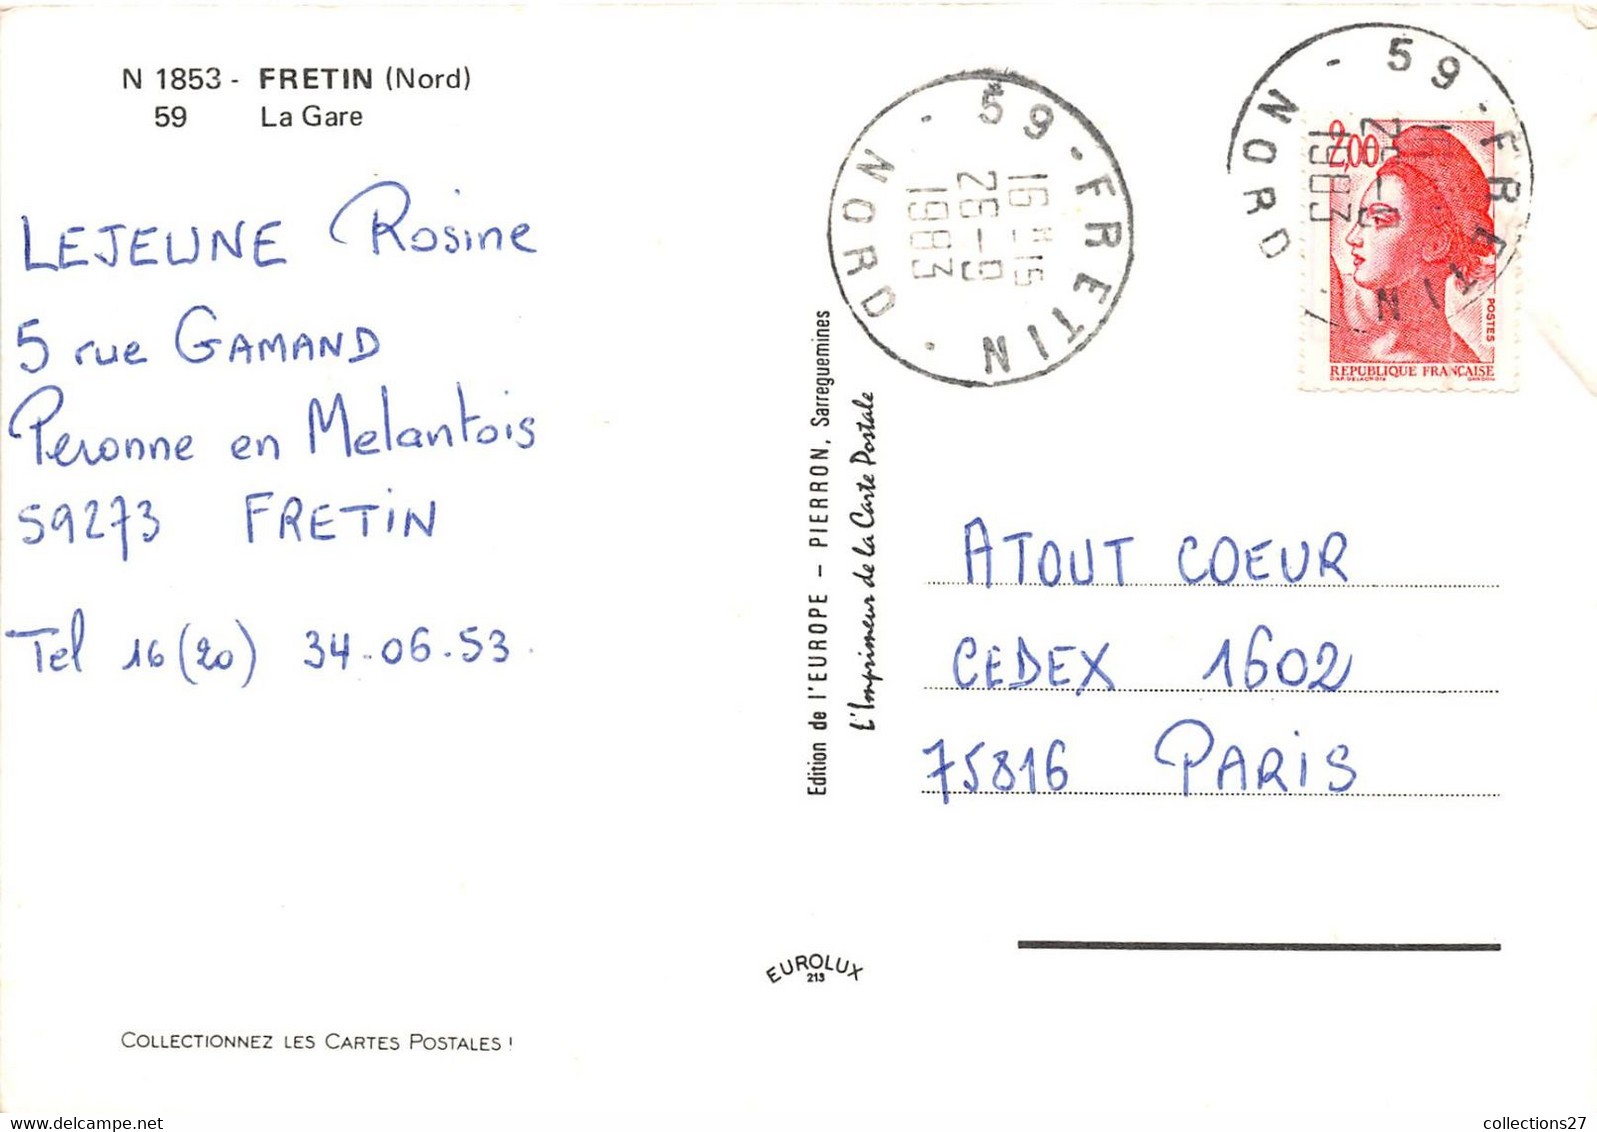 N 1853 - FRETIN (Nord)
59 La Gare
LEJEUNE Rosine
5 rue GAMAND
Peronne en Melantois
59273 FRETIN
Tel 16 (20) 34.06.53.
COLLECTIONNEZ LES CARTES POSTALES !
Edition de l'EUROPE – PIERRON, Sarreguemines
L'Imprimeur de la Carte Postale
EUROLUX
213
59 - FRETIN - NORD -
16H15
26-9
1983
59 - FRETIN - NORD -
1983
2,00
POSTES
REPUBLIQUE FRANÇAISE
D'AP. DELACROIX GANDON
ATOUT COEUR
CEDEX 1602
75816 PARIS
collections27